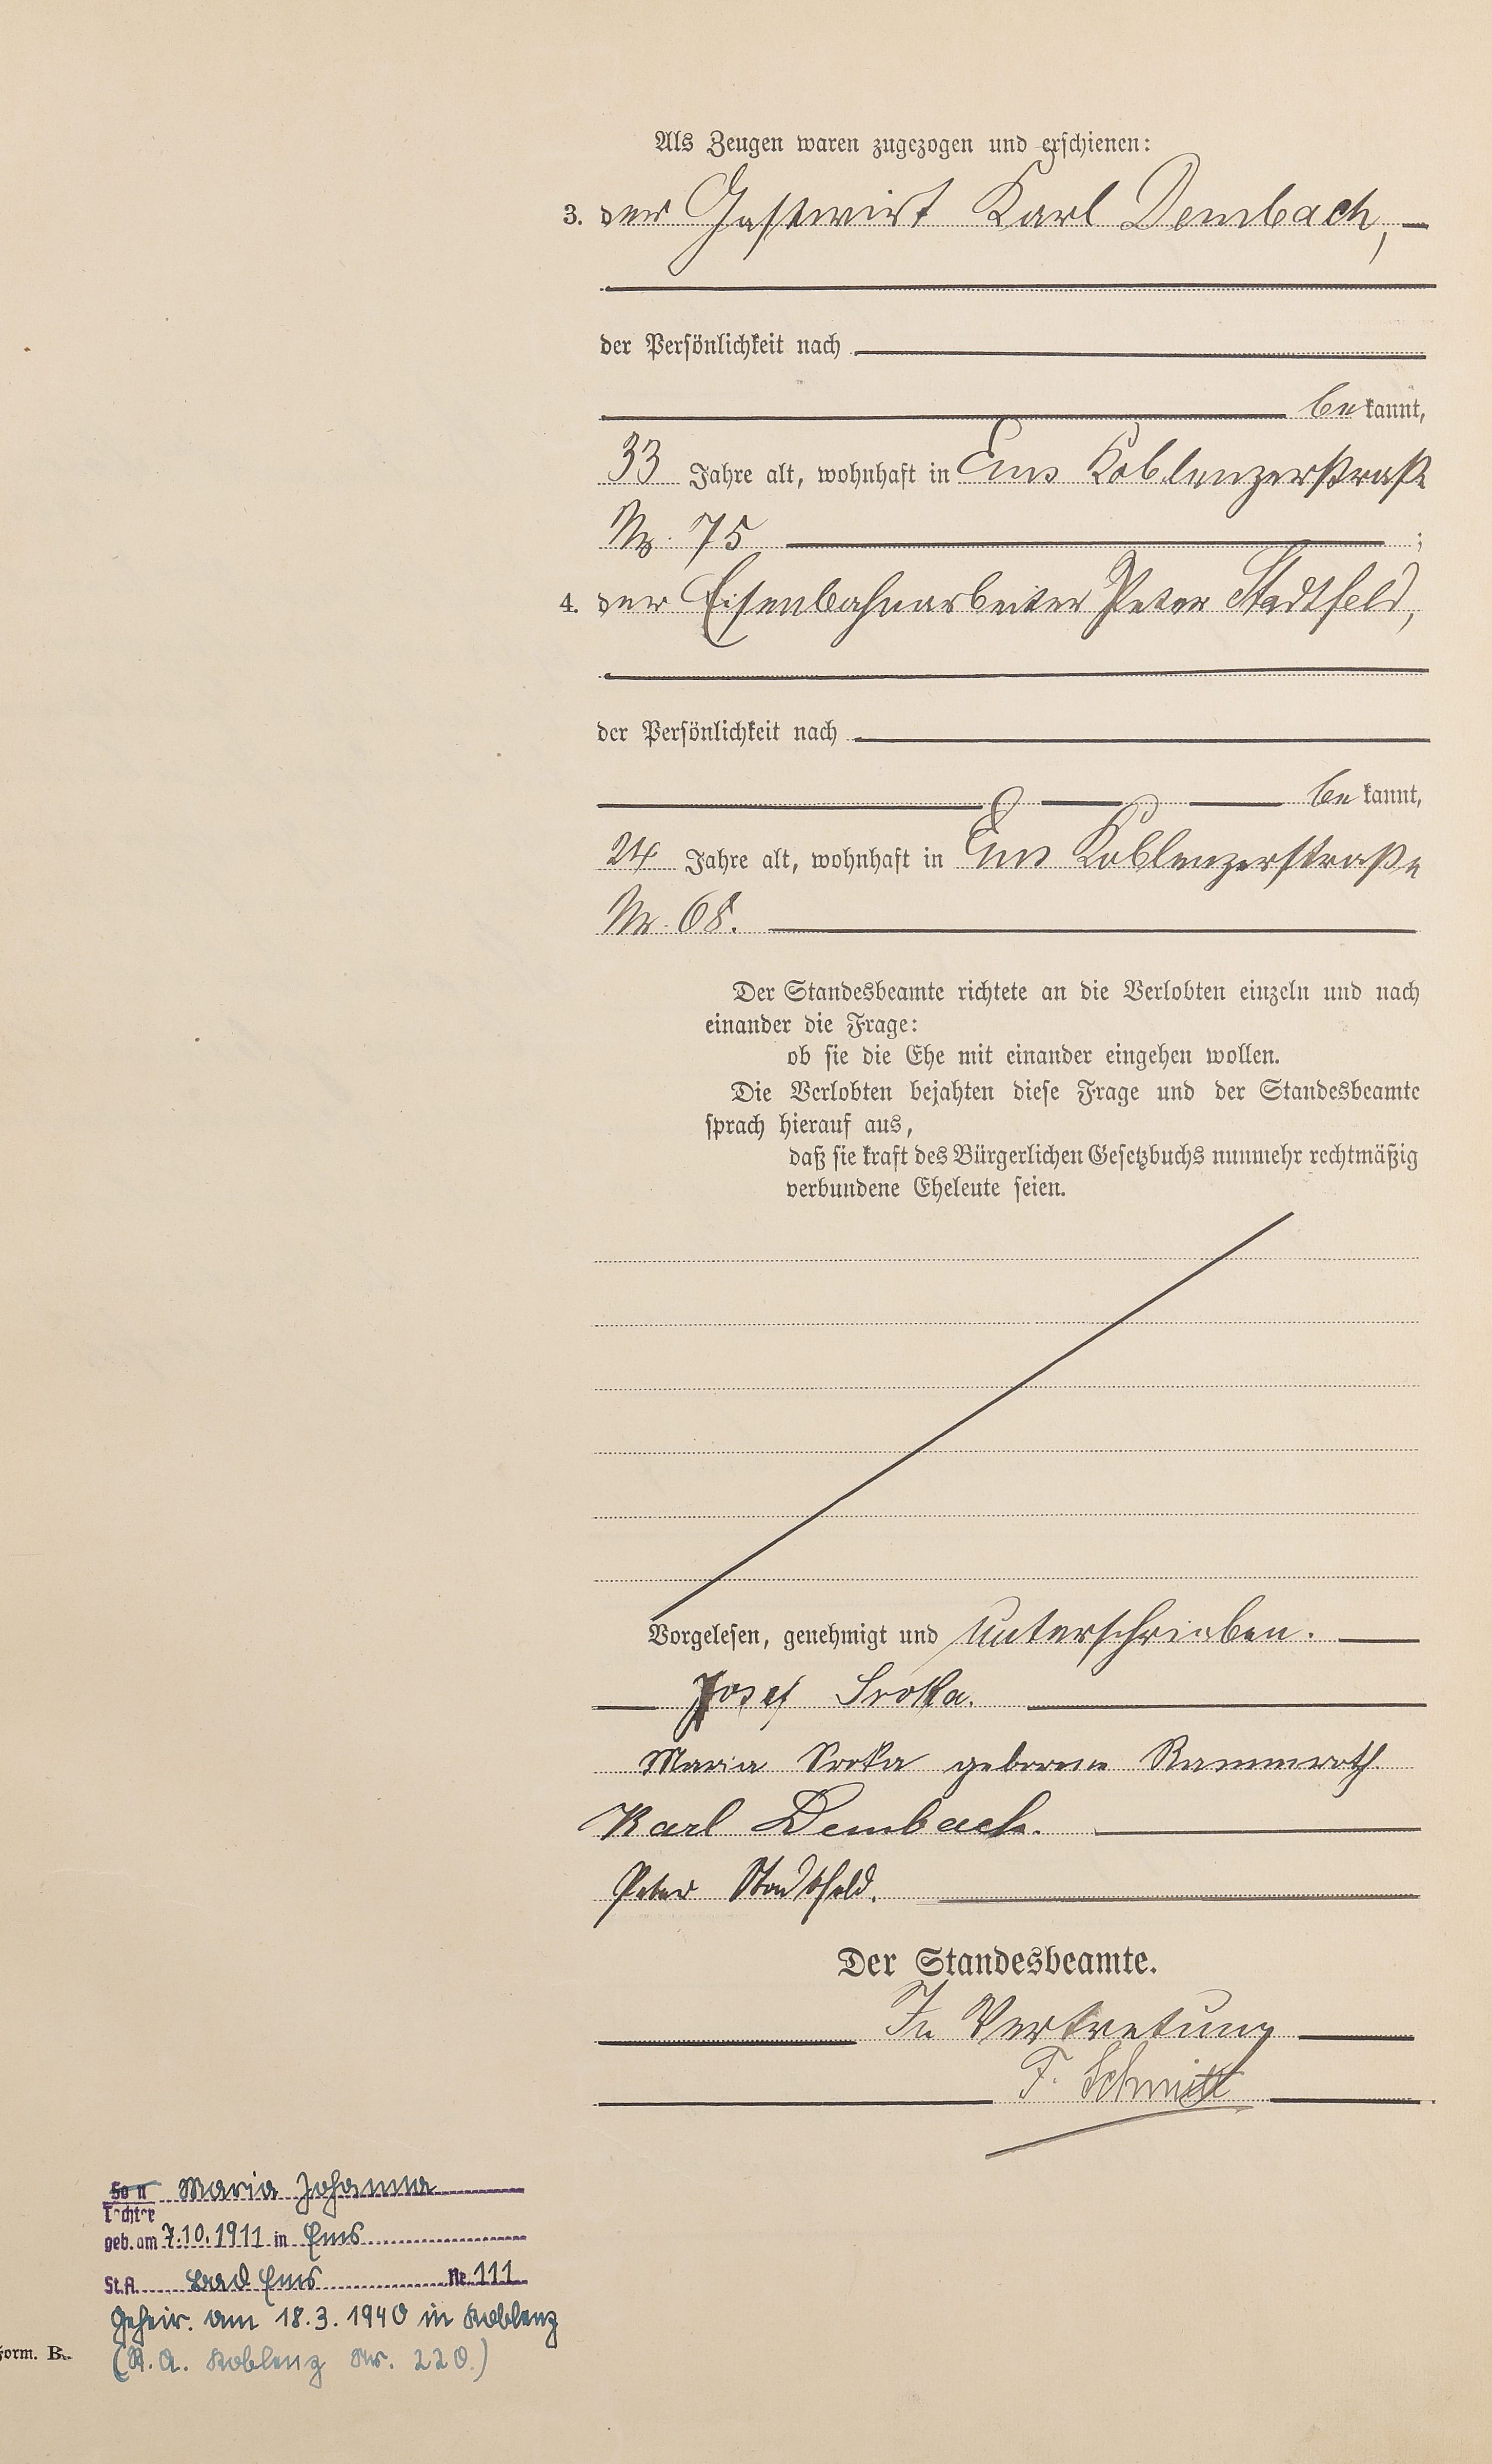 Als Zeugen waren zugezogen und erschienen:
3. der Gastwirt Karl Dembach,
der Persönlichkeit nach
bekannt,
33 Jahre alt, wohnhaft in Ems Koblenzerstraße
Nr. 75 ;
4. der Eisenbahnarbeiter Peter Stadtfeld,
der Persönlichkeit nach
bekannt,
24 Jahre alt, wohnhaft in Ems Koblenzerstraße
Nr. 68.
Der Standesbeamte richtete an die Verlobten einzeln und nach
einander die Frage:
ob sie die Ehe mit einander eingehen wollen.
Die Verlobten bejahten diese Frage und der Standesbeamte
sprach hierauf aus,
daß sie kraft des Bürgerlichen Gesetzbuchs nunmehr rechtmäßig
verbundene Eheleute seien.
Vorgelesen, genehmigt und unterschrieben.
Josef Sroka.
Maria Sroka geborene Rammroth.
Karl Dembach.
Peter Stadtfeld.
Der Standesbeamte.
In Vertretung
F. Schmitt
Sohn Maria Johanna
Tochter
geb. am 7.10.1911 in Ems
St.A. Bad Ems Nr. 111
Geheir. am 18.3.1940 in Koblenz
(St.A. Koblenz Nr. 220.)
Form. B.